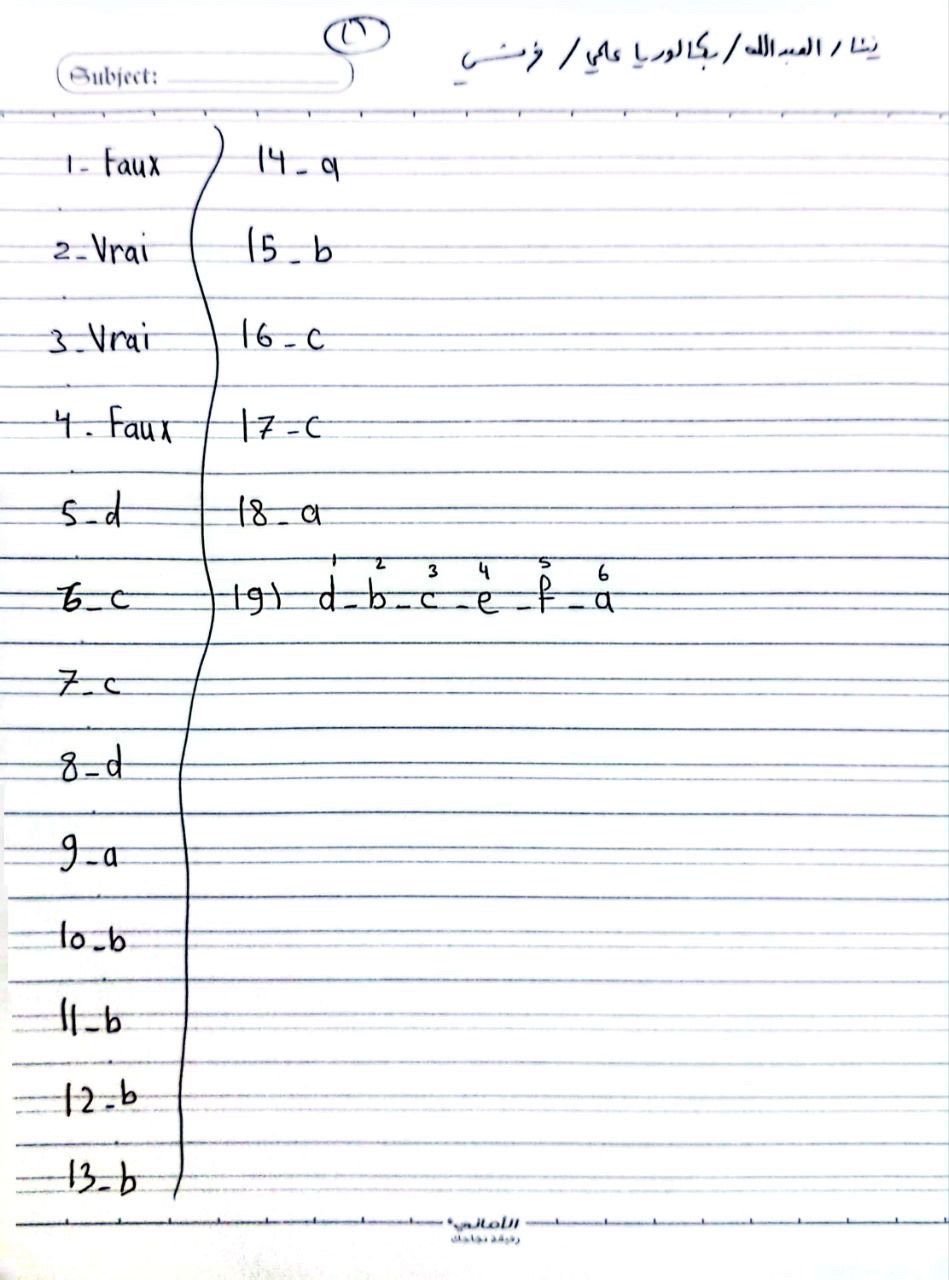 العبدالله / بكالوريا علمي /
Subject:
1- Faux
2- Vrai
3- Vrai
4. Faux
5- d
6- c
7- c
8- d
9- a
10- b
11- b
12- b
13- b
14- a
15- b
16- c
17- c
18- a
1 2 3 4 5 6
19) d-b-c-e-f-a
الأماني
رفيقة نجاحك